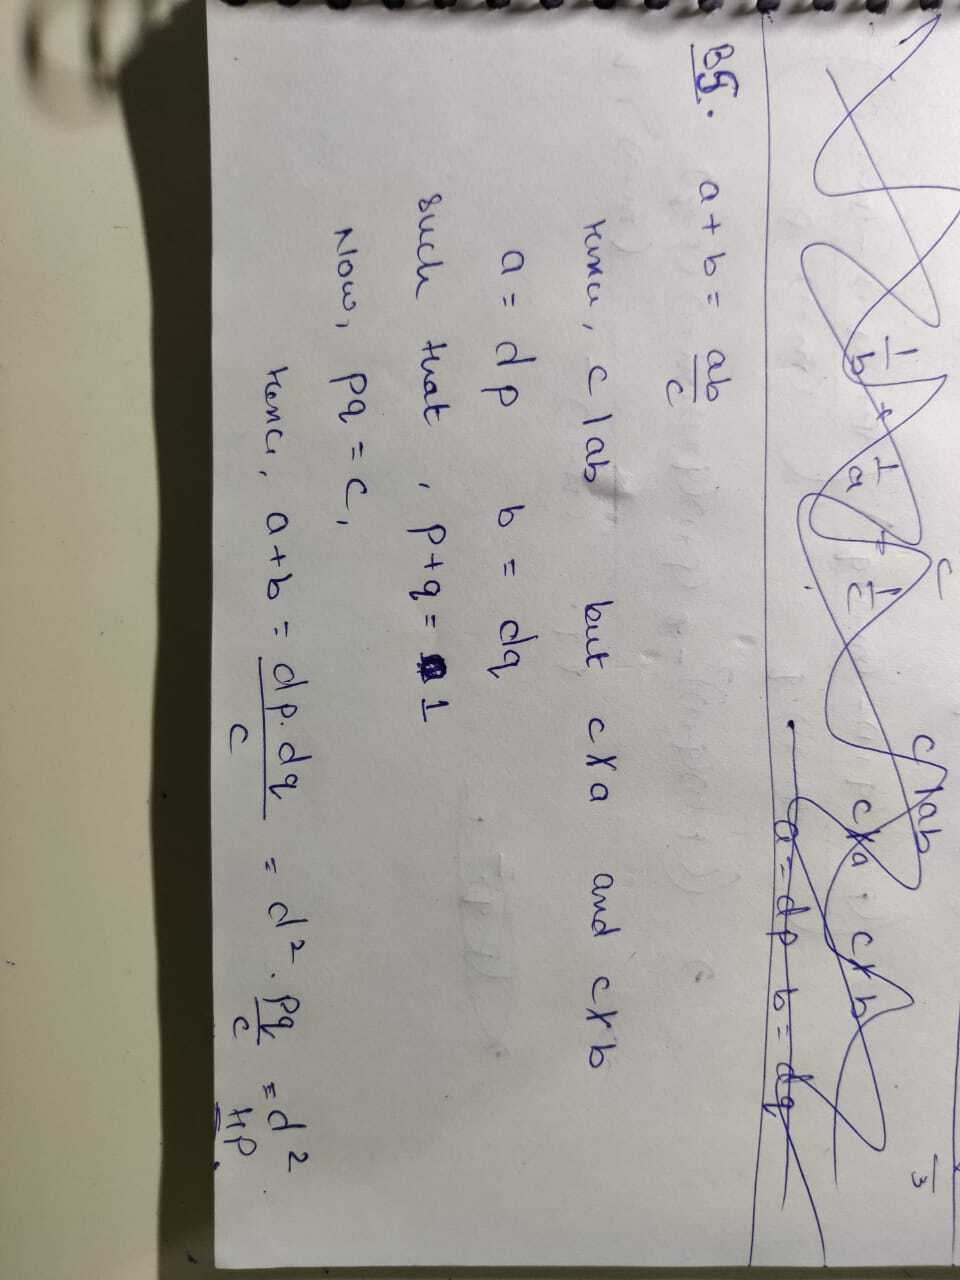 1/b + 1/a = 1/c
c
c | ab
c ∤ a . c ∤ b
a = dp b = dq
B5. a + b = ab/c
Hence, c | ab but c ∤ a and c ∤ b
a = dp b = dq
such that, p + q = 1
Now, pq = c,
Hence, a + b = dp.dq/c = d². pq/c = d²
HP.